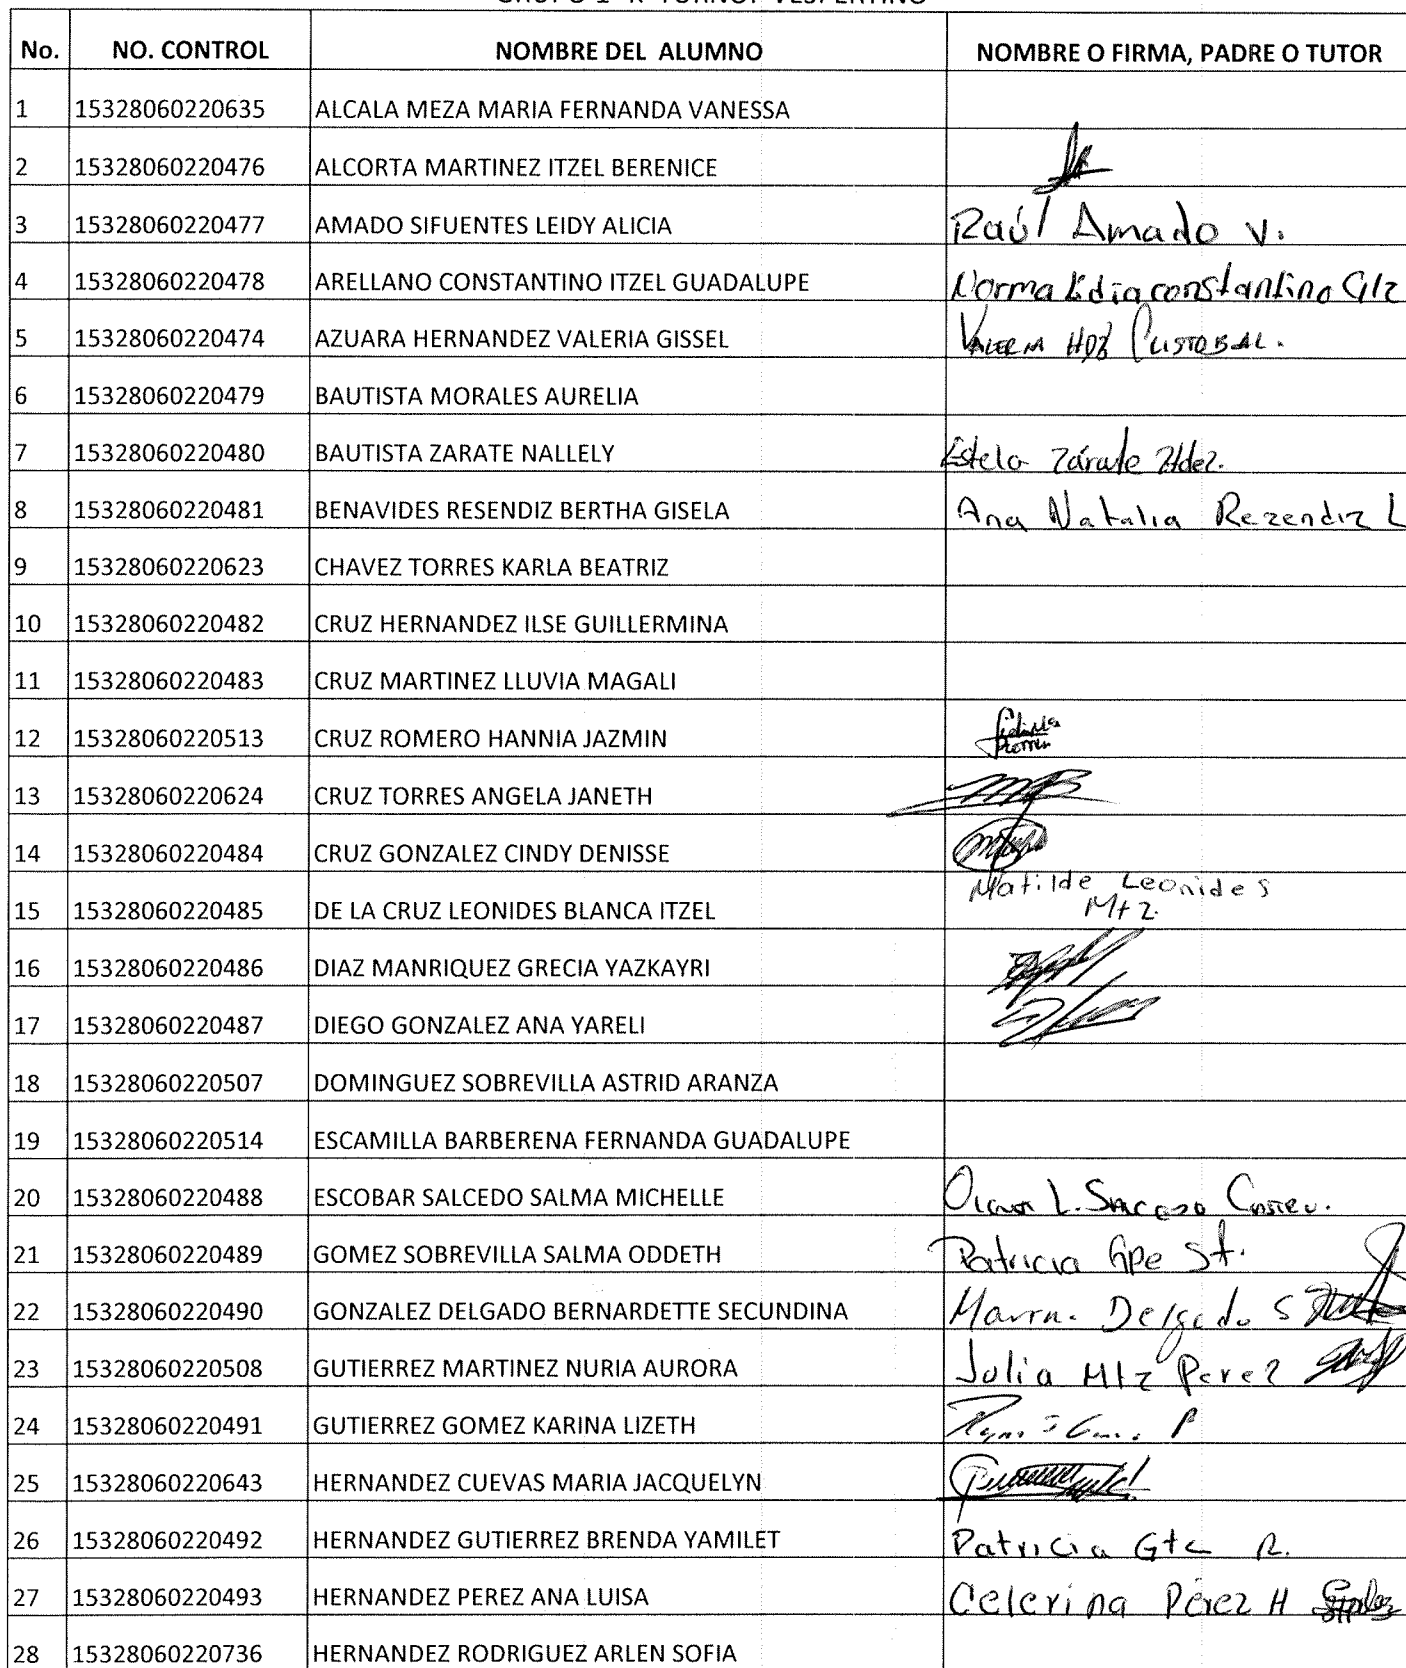 No. NO. CONTROL NOMBRE DEL ALUMNO NOMBRE O FIRMA, PADRE O TUTOR
1 15328060220635 ALCALA MEZA MARIA FERNANDA VANESSA
2 15328060220476 ALCORTA MARTINEZ ITZEL BERENICE
3 15328060220477 AMADO SIFUENTES LEIDY ALICIA Raúl Amado V.
4 15328060220478 ARELLANO CONSTANTINO ITZEL GUADALUPE Norma Lidia constantino Glz
5 15328060220474 AZUARA HERNANDEZ VALERIA GISSEL VALERIA HDZ CRISTOBAL.
6 15328060220479 BAUTISTA MORALES AURELIA
7 15328060220480 BAUTISTA ZARATE NALLELY Estela Zárate Hdez.
8 15328060220481 BENAVIDES RESENDIZ BERTHA GISELA Ana Natalia Rezendiz L
9 15328060220623 CHAVEZ TORRES KARLA BEATRIZ
10 15328060220482 CRUZ HERNANDEZ ILSE GUILLERMINA
11 15328060220483 CRUZ MARTINEZ LLUVIA MAGALI
12 15328060220513 CRUZ ROMERO HANNIA JAZMIN
13 15328060220624 CRUZ TORRES ANGELA JANETH
14 15328060220484 CRUZ GONZALEZ CINDY DENISSE
15 15328060220485 DE LA CRUZ LEONIDES BLANCA ITZEL Matilde Leonides
Mtz.
16 15328060220486 DIAZ MANRIQUEZ GRECIA YAZKAYRI
17 15328060220487 DIEGO GONZALEZ ANA YARELI
18 15328060220507 DOMINGUEZ SOBREVILLA ASTRID ARANZA
19 15328060220514 ESCAMILLA BARBERENA FERNANDA GUADALUPE
20 15328060220488 ESCOBAR SALCEDO SALMA MICHELLE
21 15328060220489 GOMEZ SOBREVILLA SALMA ODDETH Patricia Gpe St.
22 15328060220490 GONZALEZ DELGADO BERNARDETTE SECUNDINA Delgado S
23 15328060220508 GUTIERREZ MARTINEZ NURIA AURORA Julia Mtz Perez
24 15328060220491 GUTIERREZ GOMEZ KARINA LIZETH
25 15328060220643 HERNANDEZ CUEVAS MARIA JACQUELYN
26 15328060220492 HERNANDEZ GUTIERREZ BRENDA YAMILET Patricia Gtz R.
27 15328060220493 HERNANDEZ PEREZ ANA LUISA Celerina Pérez H
28 15328060220736 HERNANDEZ RODRIGUEZ ARLEN SOFIA